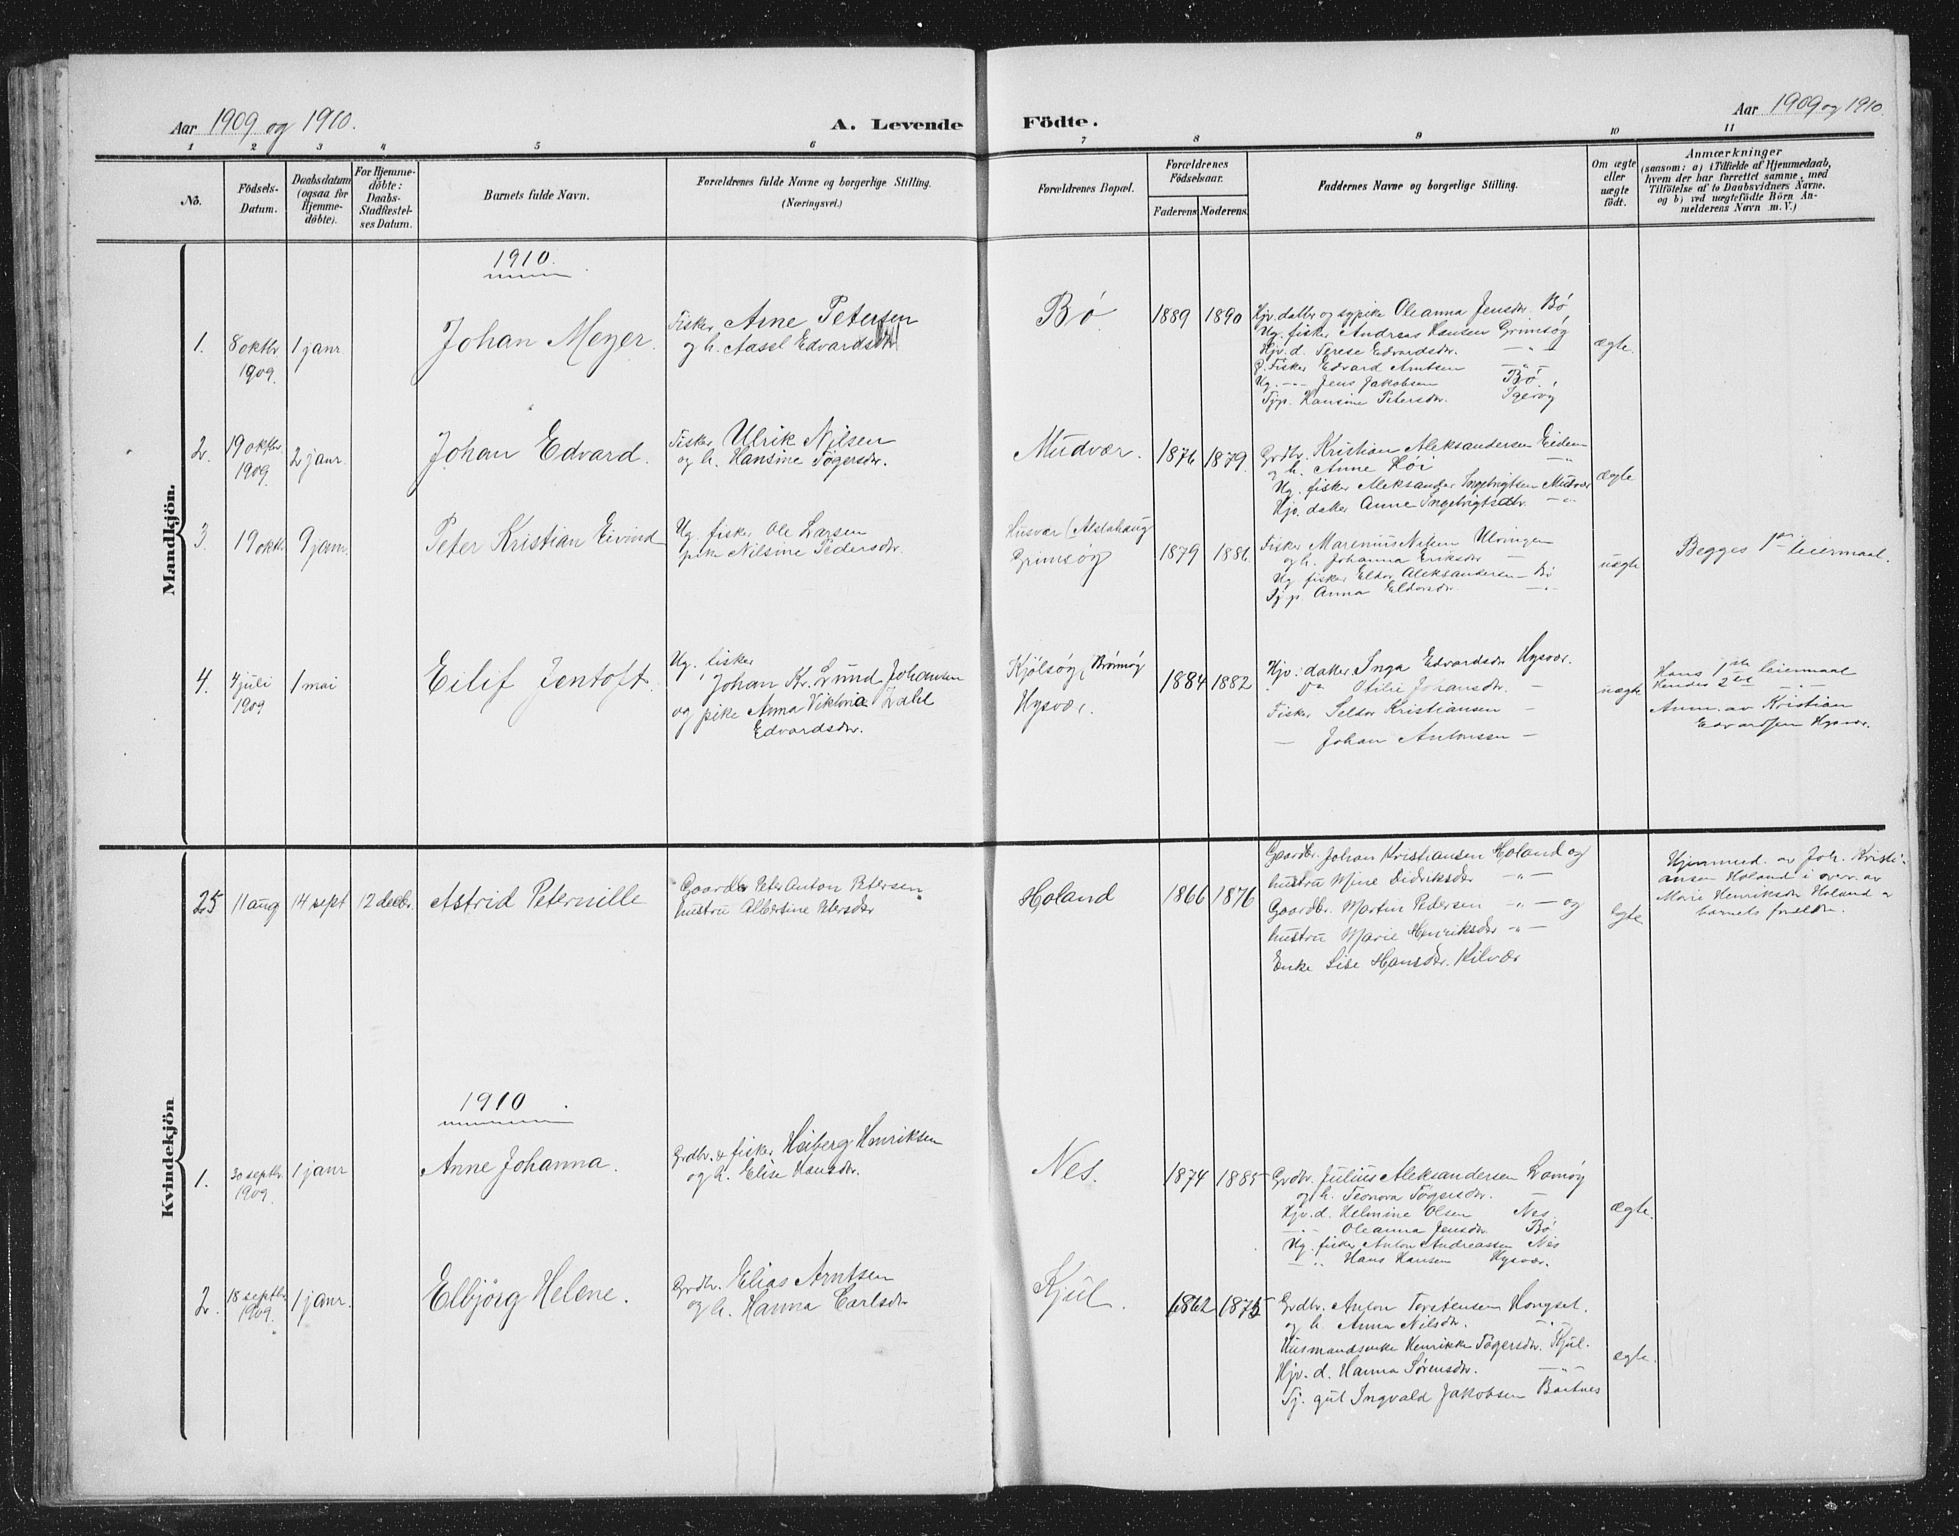 Aar 1909 og 1910.
A. Levende Födte.
Aar 1909 og 1910.
1 2 3 4 5 6 7 8 9 10 11
No.
Födsels-
Datum.
Daabsdatum
(opsaa for
Hjemme-
döbte).
For Hjemme-
döbte:
Daabs-
Stadfestel-
ses Datum.
Barnets fulde Navn.
Forældrenes fulde Navne og borgerlige Stilling.
(Næringsvei.)
Forældrenes Bopæl.
Forældrenes
Födselsaar.
Faderens Moderens.
Faddernes Navne og borgerlige Stilling.
Om ægte
eller
uægte
födt.
Anmærkninger
(saasom: a) i Tilfælde af Hjemmedaab,
hvem der har forrettet samme, med
Tilföielse af to Daabsvidners Navne.
og b) ved uægtefödte Börn An-
melderens Navn m. V.)
Mandkjön.
1910.
1. 8 oktbr 1909. 1 janr Johan Meyer.
Fisker Arne Petersen
og h. Aassl Edvardsdr
Bø 1889 1890
Hjv. datbr og sypike Oleanna Jensdr. Bø
Ug. fisker Andreas Hansen Grimsøy
Hjv. d. Terese Edvardsdr. — " —
G. Fisker Edvard Arntsen — " —
Ug. — " — Jens Jakobsen Bø
Tjp. Hansine Petersdr.
ægte.
2. 19 oktbr. 1909. 2 janr. Johan Edvard.
Fisker Ulrik Nilsen
og h. Hansine Tøgersdr.
Mudvær. 1876 1879.
Grdbr. Kristian Aleksandersen Eidem
og h. Anne
Ug. fisker Aleksander Ingebrigtsen Mudvær
Hjv. datter Anne Ingebrigtsdtr. — " —
ægte
3. 19 oktr. 9 janr. Peter Kristian Eivind
Ug. fisker Ole Larsen
pike Nilsine Pedersdr.
Husvær (Alstahaug
Grimsøy
1879 1886
Fisker Marenius Nilsen Ulvingen
og h. Johanna Eriksdr — " —
Ug. fisker Eldor Aleksandersen — Bø
Tj. p. Anna Eldorsdr. — " —
uegte
Begges 1ste leiermaal.
4. 4 juli 1909 1 mai Eilif Jentoft.
Ug. fisker
Johan Kr. Lund Johansen
og pike Anna Viktoria Dahl
Edvardsdr.
Kjølsøy, Brønnøy
Hysvær.
1884 1882
Hjv. datter Inga Edvardsdr Hysvær.
" Do Otilie Johansdr. —
Fisker Seldor Kristiansen —
— Johan Antonsen —
uægte
Hans 1ste leiermaal
Hendes 2det — " —
Anm. av Kristian
Edvardsen Hysvær.
Kvindekjön
25 11 aug 14 sept 12 decbr. Astrid Peternille
Gaardbr Peter Anton Petersen
hustru Albertine Petersdr
Holand 1866 1876
Gaardbr. Johan Kristiansen Holand og
hustru Mine Didriksdr — " —
Gaardbr. Martin Pedersen — " — og
hustru Marie Henriksdr — " —
Enke Lise Hansdr. Kilvær
egte
Hjemmed. av Joh. Kristi-
ansen Holand i overv. av
Marie Henriksdr Holand o
barnets foreldre.
1910
1. 30 septbr 1909. 1 janr Anne Johanna.
Grdbr. & fisker Heiberg Henriksen
og h. Elise Hansdr.
Nes. 1874 1885
Grdbr. Julius Aleksandersen Lamøy
og h. Teonora Tøgersdr.
Hjv. d. Helmine Olsen Nes.
— " — Oleanna Jensdr Bø
Ug. fisker Anton Andreassen Nes
— " — Hans Hansen Hysvær.
ægte.
2. 18 septbr 1909. 1 janr. Elbjörg Helene.
Grdbr. Elias Arntsen
og h. Hanna Carlsdr
Kjul. 1862 1875
Grdbr. Anton Torstensen Hongset.
og h. Anna Nilsdr. — " —
Husmandsenke Henrikke Tøgersdr. Kjul.
Hjv. d. Hanna Sørensdr. — " —
Tj. gut Ingvald Jakobsen Bortnes
ægte.